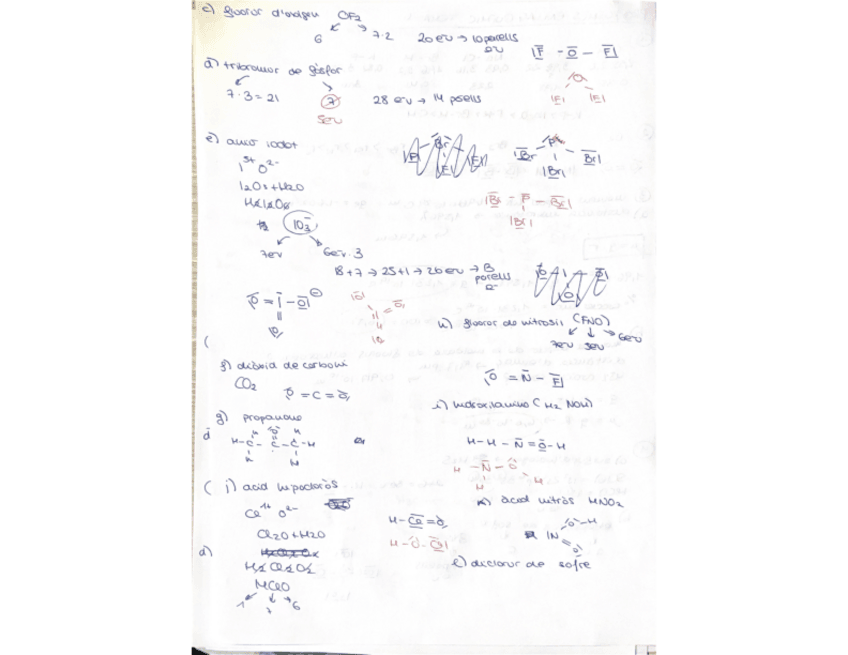 c) fluorur d'oxigen OF₂
6 7·2 20 ev → 10 parells
ev
|F - O - F|
d) tribromur de fòsfor
7·3 = 21 7 28 ev → 14 parells
5ev
|Br - P - Br|
|Br|
e) anió iodat
I⁵⁺ O²⁻
I₂O₅ + H₂O
H₂I₂O₆
IO₃⁻
7ev 6ev·3
18 + 7 → 25 + 1 → 26 ev → 13
parells
e⁻
O = I - O| ⊖
h) fluorur de nitrosil (FNO)
7ev 5ev 6ev
f) diòxid de carboni
CO₂ O = C = O
O = N - F|
i) hidroxilamina (H₂NOH)
g) propanona
H - C - C - C - H
H - H - N = O - H
H - N - O
H H
j) àcid hipoclorós
Cl¹⁺ O²⁻
Cl₂O + H₂O
H₂Cl₂O₂
HClO
H - Cl = O
H - O - Cl|
k) àcid nitrós HNO₂
d)
l) diclorur de sofre